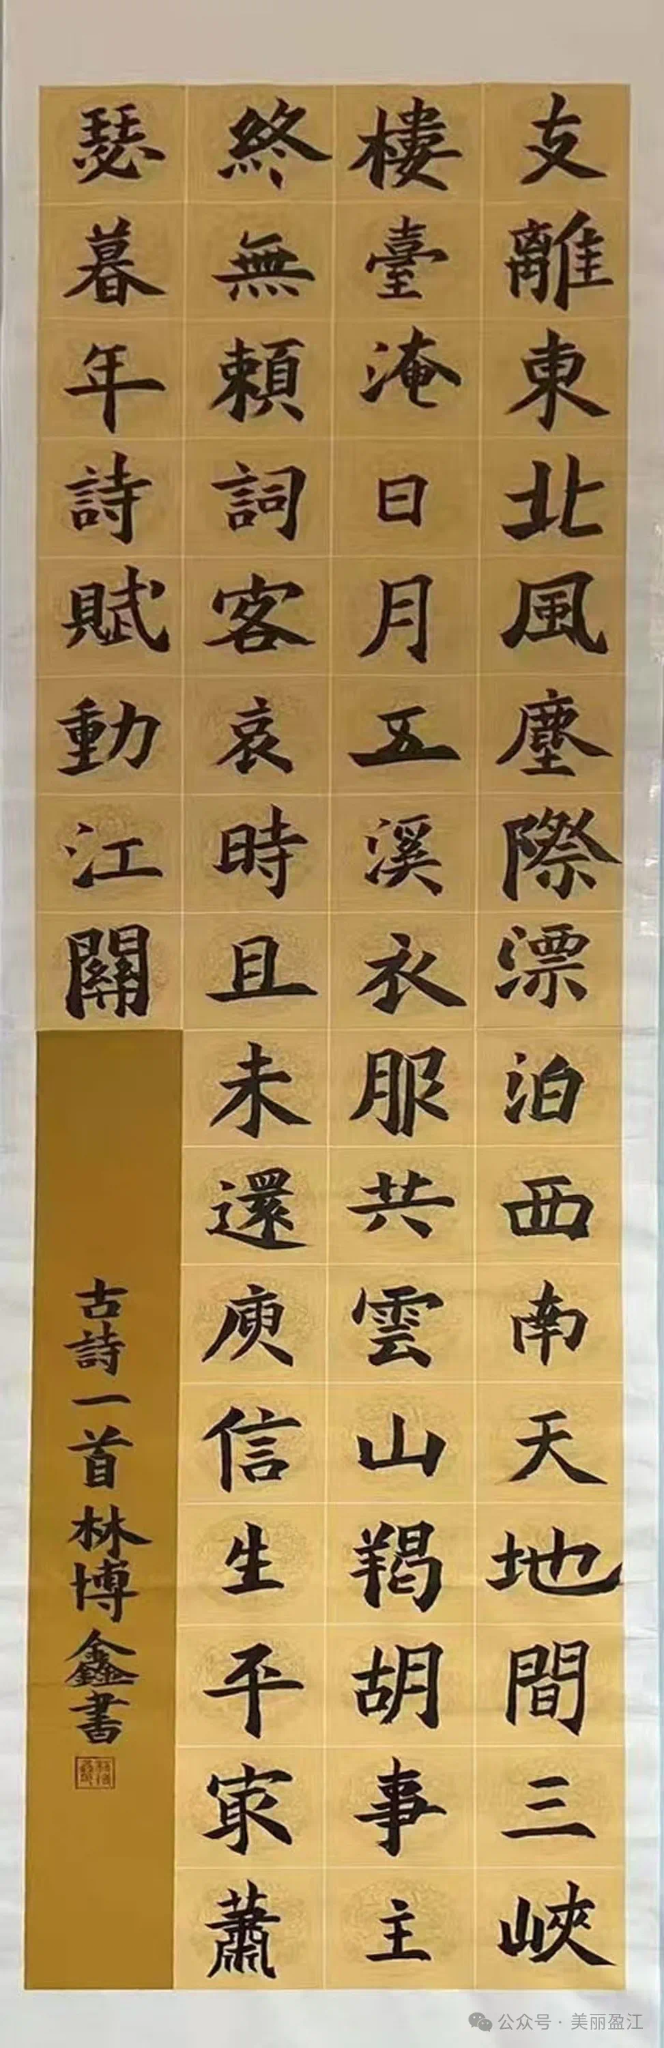 支離東北風塵際漂泊西南天地間三峽
樓臺淹日月五溪衣服共雲山羯胡事主
終無賴詞客哀時且未還庾信生平㝡蕭
瑟暮年詩賦動江關
古詩一首林博鑫書
公众号·美丽盈江